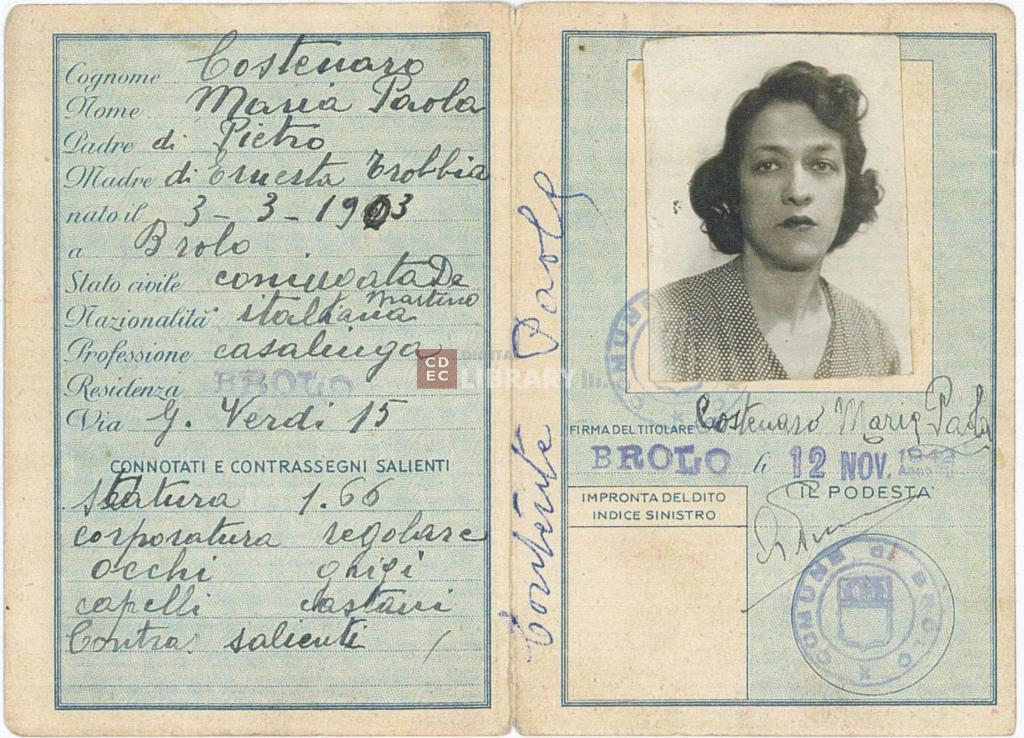 Cognome Costenaro
Nome Maria Paola
Padre di Pietro
Madre di Ernesta Trobbia
nato il 3 - 3 - 1903
a Brolo
Stato civile coniugata De Martino
Nazionalità italiana
Professione casalinga
Residenza BROLO
Via G. Verdi 15
CONNOTATI E CONTRASSEGNI SALIENTI
Statura 1.66
corporatura regolare
occhi grigi
capelli castani
Contra. salienti /
CDEC DIGITAL LIBRARY
Paola
COMUNE
FIRMA DEL TITOLARE Costenaro Maria Paola
BROLO li 12 NOV. 1943
IL PODESTA'
IMPRONTA DEL DITO
INDICE SINISTRO
COMUNE di BROLO